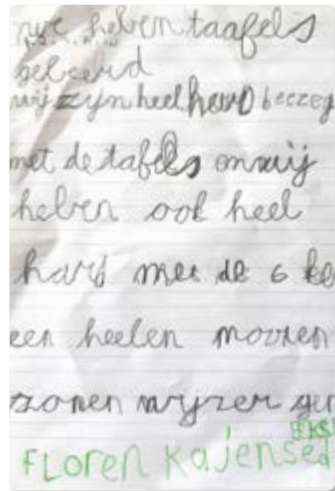 heben taafels
geleerd
wij zijn heel hard beezeg
met de tafels en wij
heben ook heel
hard met de 6
een heelen
zonen wyzer
FLoren Kajensed